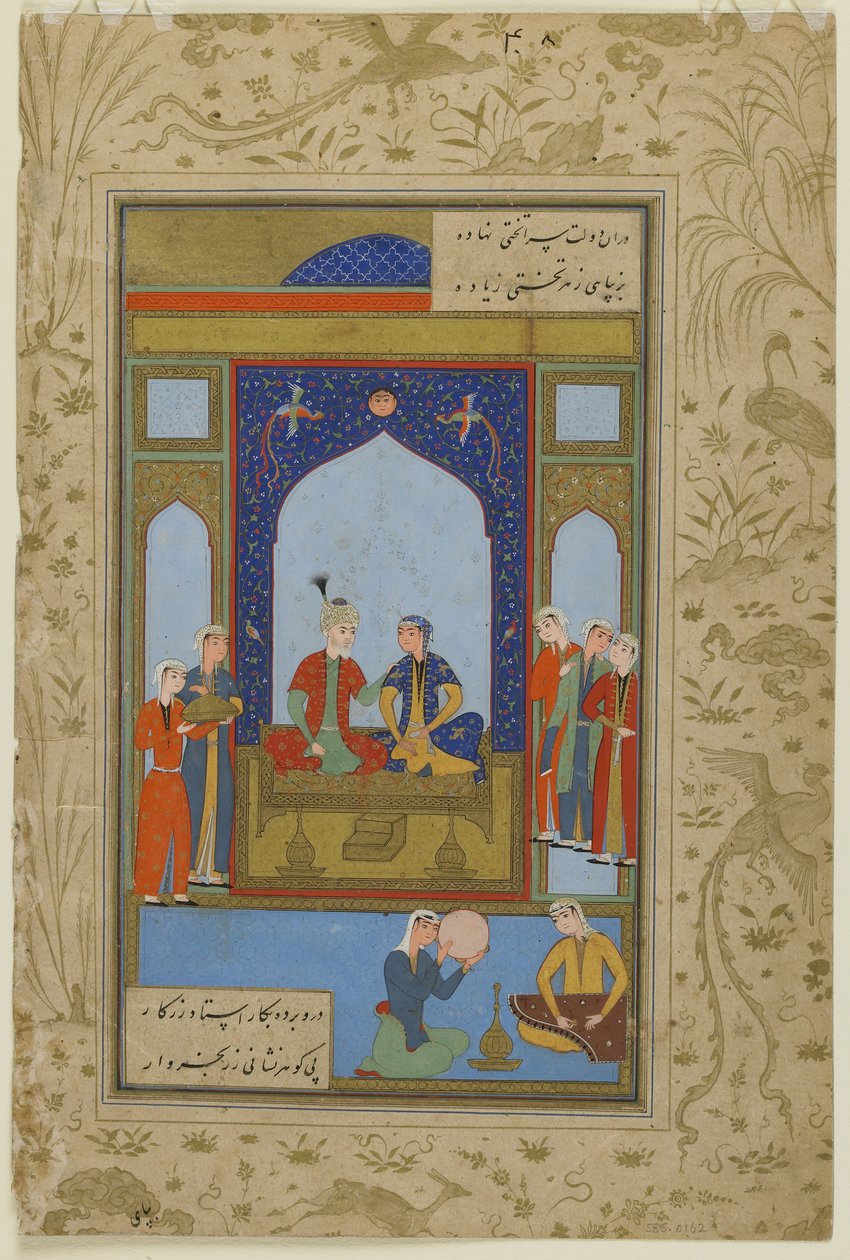 دران دولت سرا تختی نهاده
بزیبای ز هر تختی زیاده
درو برده بکار استاد زرکار
پی کوهر نشانی زر بخروار
S86.0162